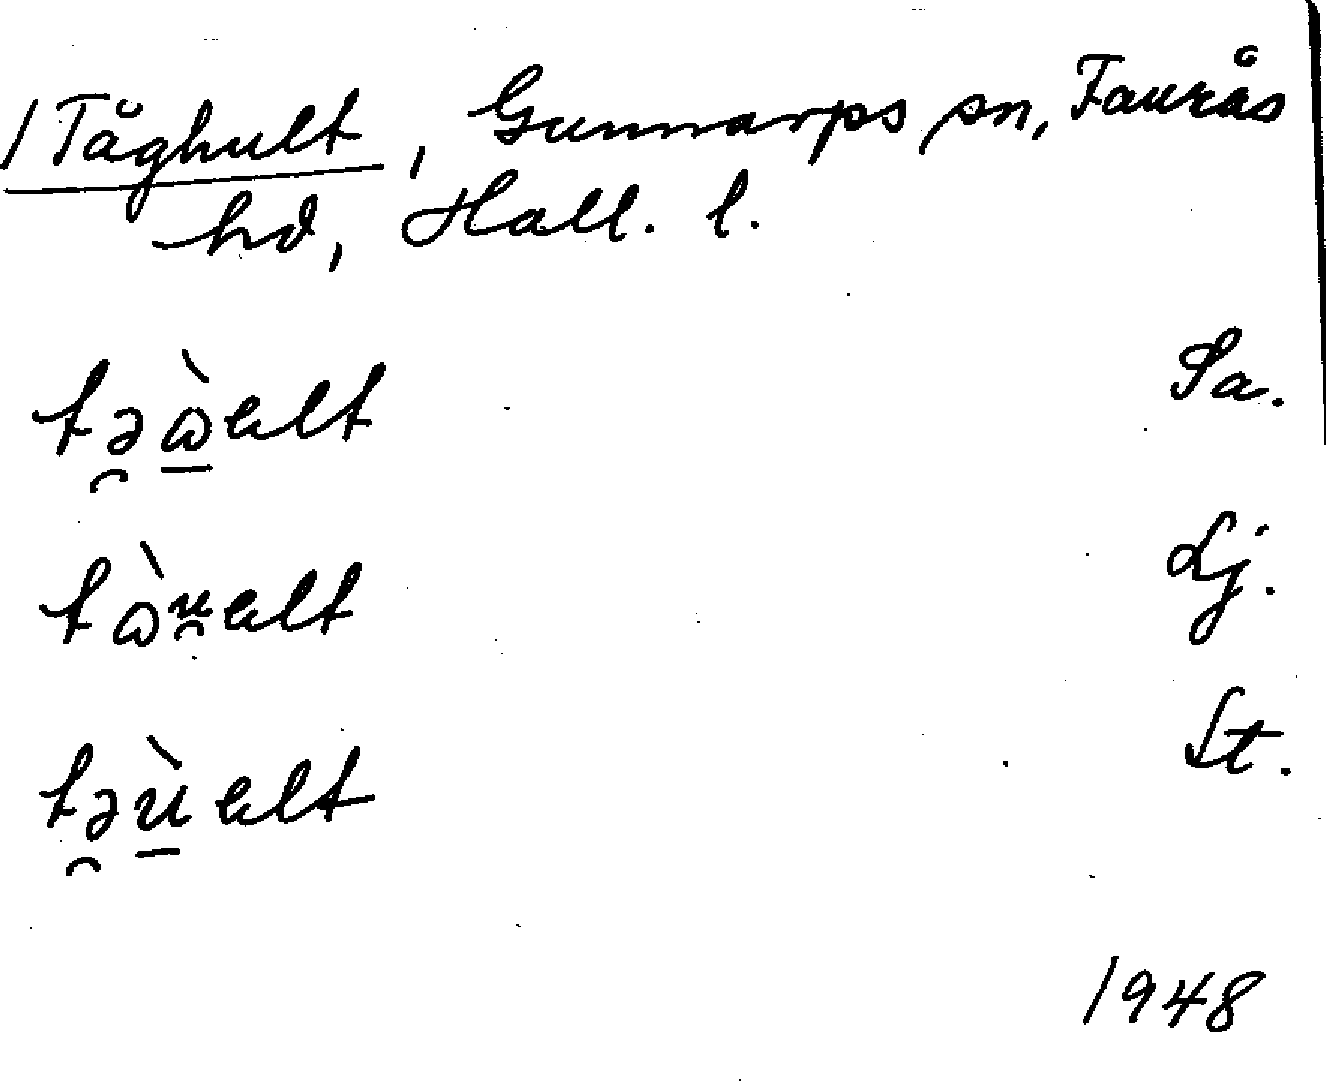 / Tåghult, Gunnarps sn, Faurås
hd, Hall. l.
tə̯ὼ̱ɐlt Sa.
tὼu̯ɐlt Lj.
tə̯ṵ̀ɐlt St.
1948